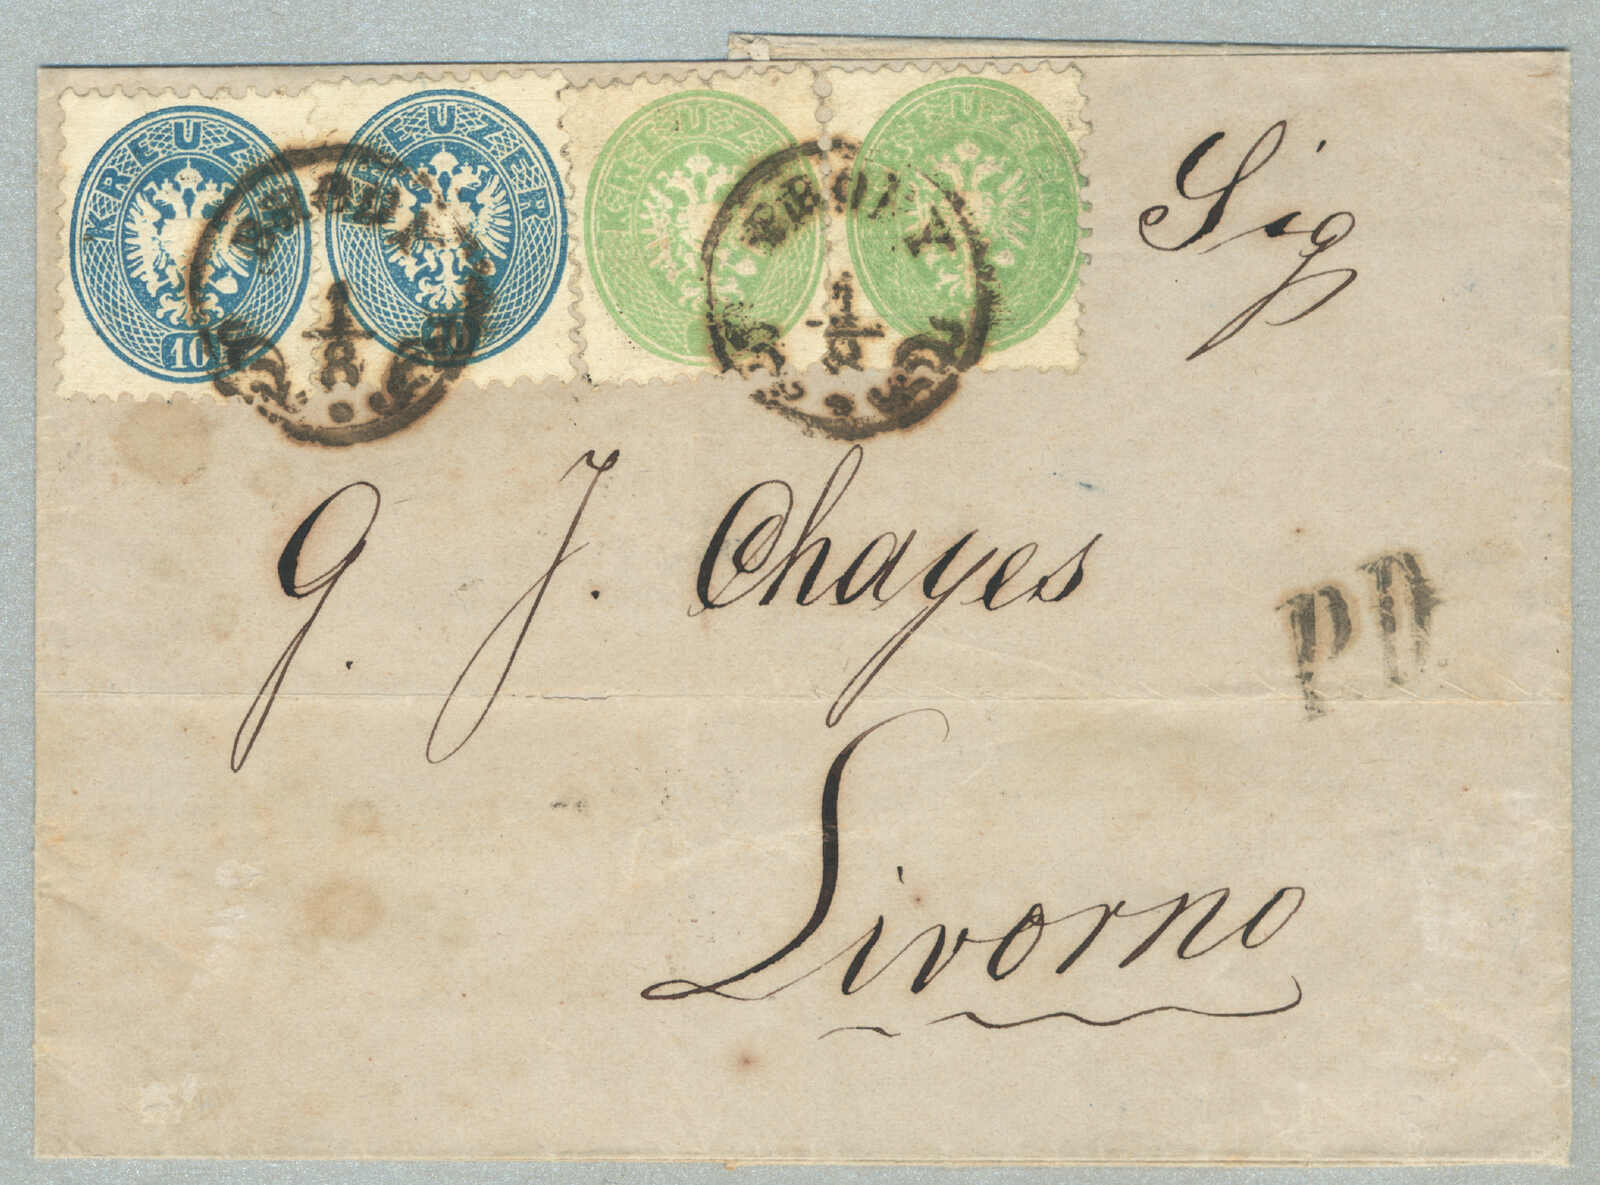 KREUZER KREUZER KREUZER KREUZER
10 10
1/8
Sig
G. J. Chayes
PD
Livorno